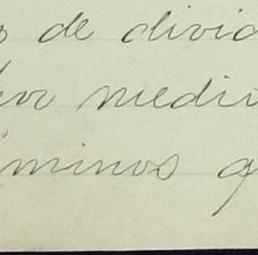 de divid
por medio
minos q